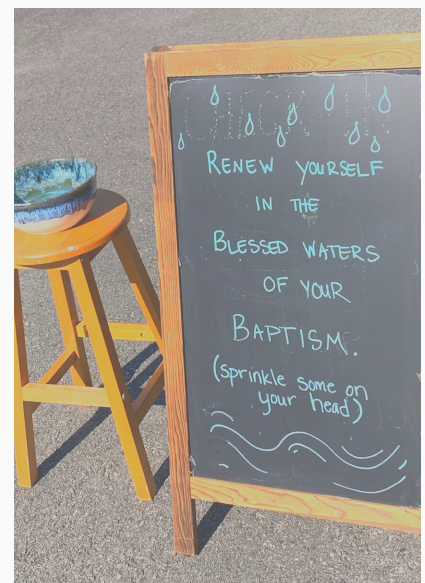 CHECK IN
RENEW YOURSELF
IN THE
BLESSED WATERS
OF YOUR
BAPTISM.
(sprinkle some on
your head)